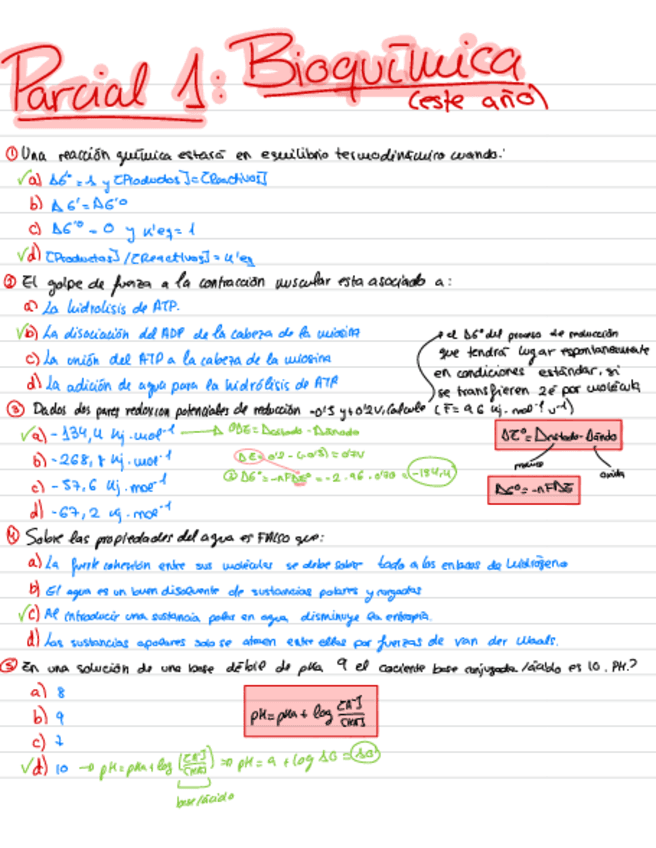 Parcial 1: Bioquímica
(este año)
① Una reacción química estará en equilibrio termodinámico cuando:
a) ΔG'° = 1 y [Productos]=[Reactivos]
b) ΔG' = ΔG'°
c) ΔG'° = 0 y K'eq = 1
d) [Productos]/[Reactivos] = K'eq
② El golpe de fuerza a la contracción muscular esta asociado a:
a) La hidrólisis de ATP.
b) La disociación del ADP de la cabeza de la miosina
c) La unión del ATP a la cabeza de la miosina
d) la adición de agua para la hidrólisis de ATP
el ΔG° del proceso de reducción
que tendrá lugar espontaneamente
en condiciones estándar, si
se transfieren 2e por molécula
③ Dados dos pares redox con potenciales de reducción -0'5 y +0'2V, calcule (F= 96 kj. mol⁻¹ V⁻¹)
a) - 134,4 kj. mol⁻¹
b) - 268,8 kj. mol⁻¹
ΔE= 0'2 - (-0'5) = 0'7V
c) - 57,6 kj. mol⁻¹
② ΔG°= -nFΔE° = -2 . 96 . 0'70 = -134,4
d) - 67,2 kj. mol⁻¹
ΔG° = -nFΔE
④ Sobre las propiedades del agua es FALSO que:
a) La fuerte cohesión entre sus moléculas se debe sobre todo a los enlaces de hidrógeno
b) El agua es un buen disolvente de sustancias polares y cargadas
c) Al introducir una sustancia polar en agua, disminuye la entropía.
d) Las sustancias apolares solo se atraen entre ellas por fuerzas de van der Waals.
⑤ En una solución de una base débil de pKa 9 el cociente base conjugada /ácido es 10. PH?
a) 8
b) 9
pH = pKa + log [A⁻]/[HA]
c) 7
d) 10 → pH = pKa + log ([A⁻]/[HA]) ⇒ pH = 9 + log 10 = 10
base/ácido